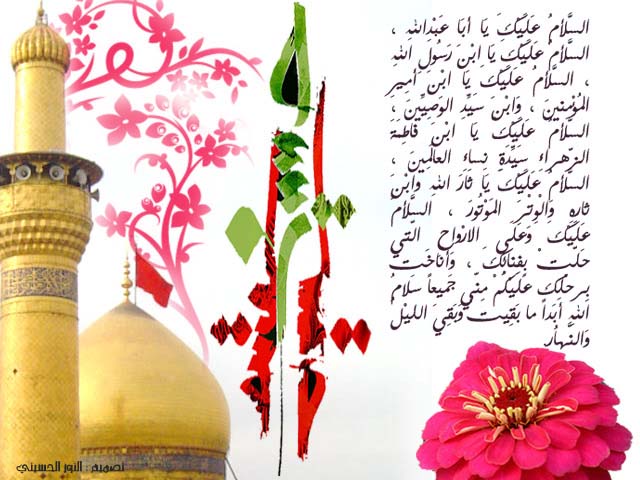 السَّلاٰمُ عَلَيْكَ يَا أَبَا عَبْدِاللهِ ،
السَّلاٰمُ عَلَيْكَ يَا ابْنَ رَسُولِ اللهِ
، السَّلاٰمُ عَلَيْكَ يَا ابْنَ أَمِيرِ
المُؤْمِنينَ ، وَابْنَ سَيِّدِ الوَصِيِّينَ ،
السَّلاٰمُ عَلَيْكَ يَا ابْنَ فَاطِمَةَ
الزّهراءِ سَيِّدَةِ نِساءِ العالَمِينَ ،
السَّلاٰمُ عَلَيْكَ يَا ثَارَ اللهِ وَابْنَ
ثارِهِ وَالْوِتْرَ المَوْتُورَ ، السَّلاٰمُ
عَلَيْكَ وَعَلَى الارْوَاحِ الَّتي
حَلَّتْ بِفِنائِكَ ، وَأَنَاخَت
بِرحلك عَلَيكُمْ مِنّي جَميعاً سَلامُ
اللهِ أَبَداً ما بَقِيت وَبَقِيَ الليْلُ
وَالنَّهارُ
تصميم : النور الحسيني